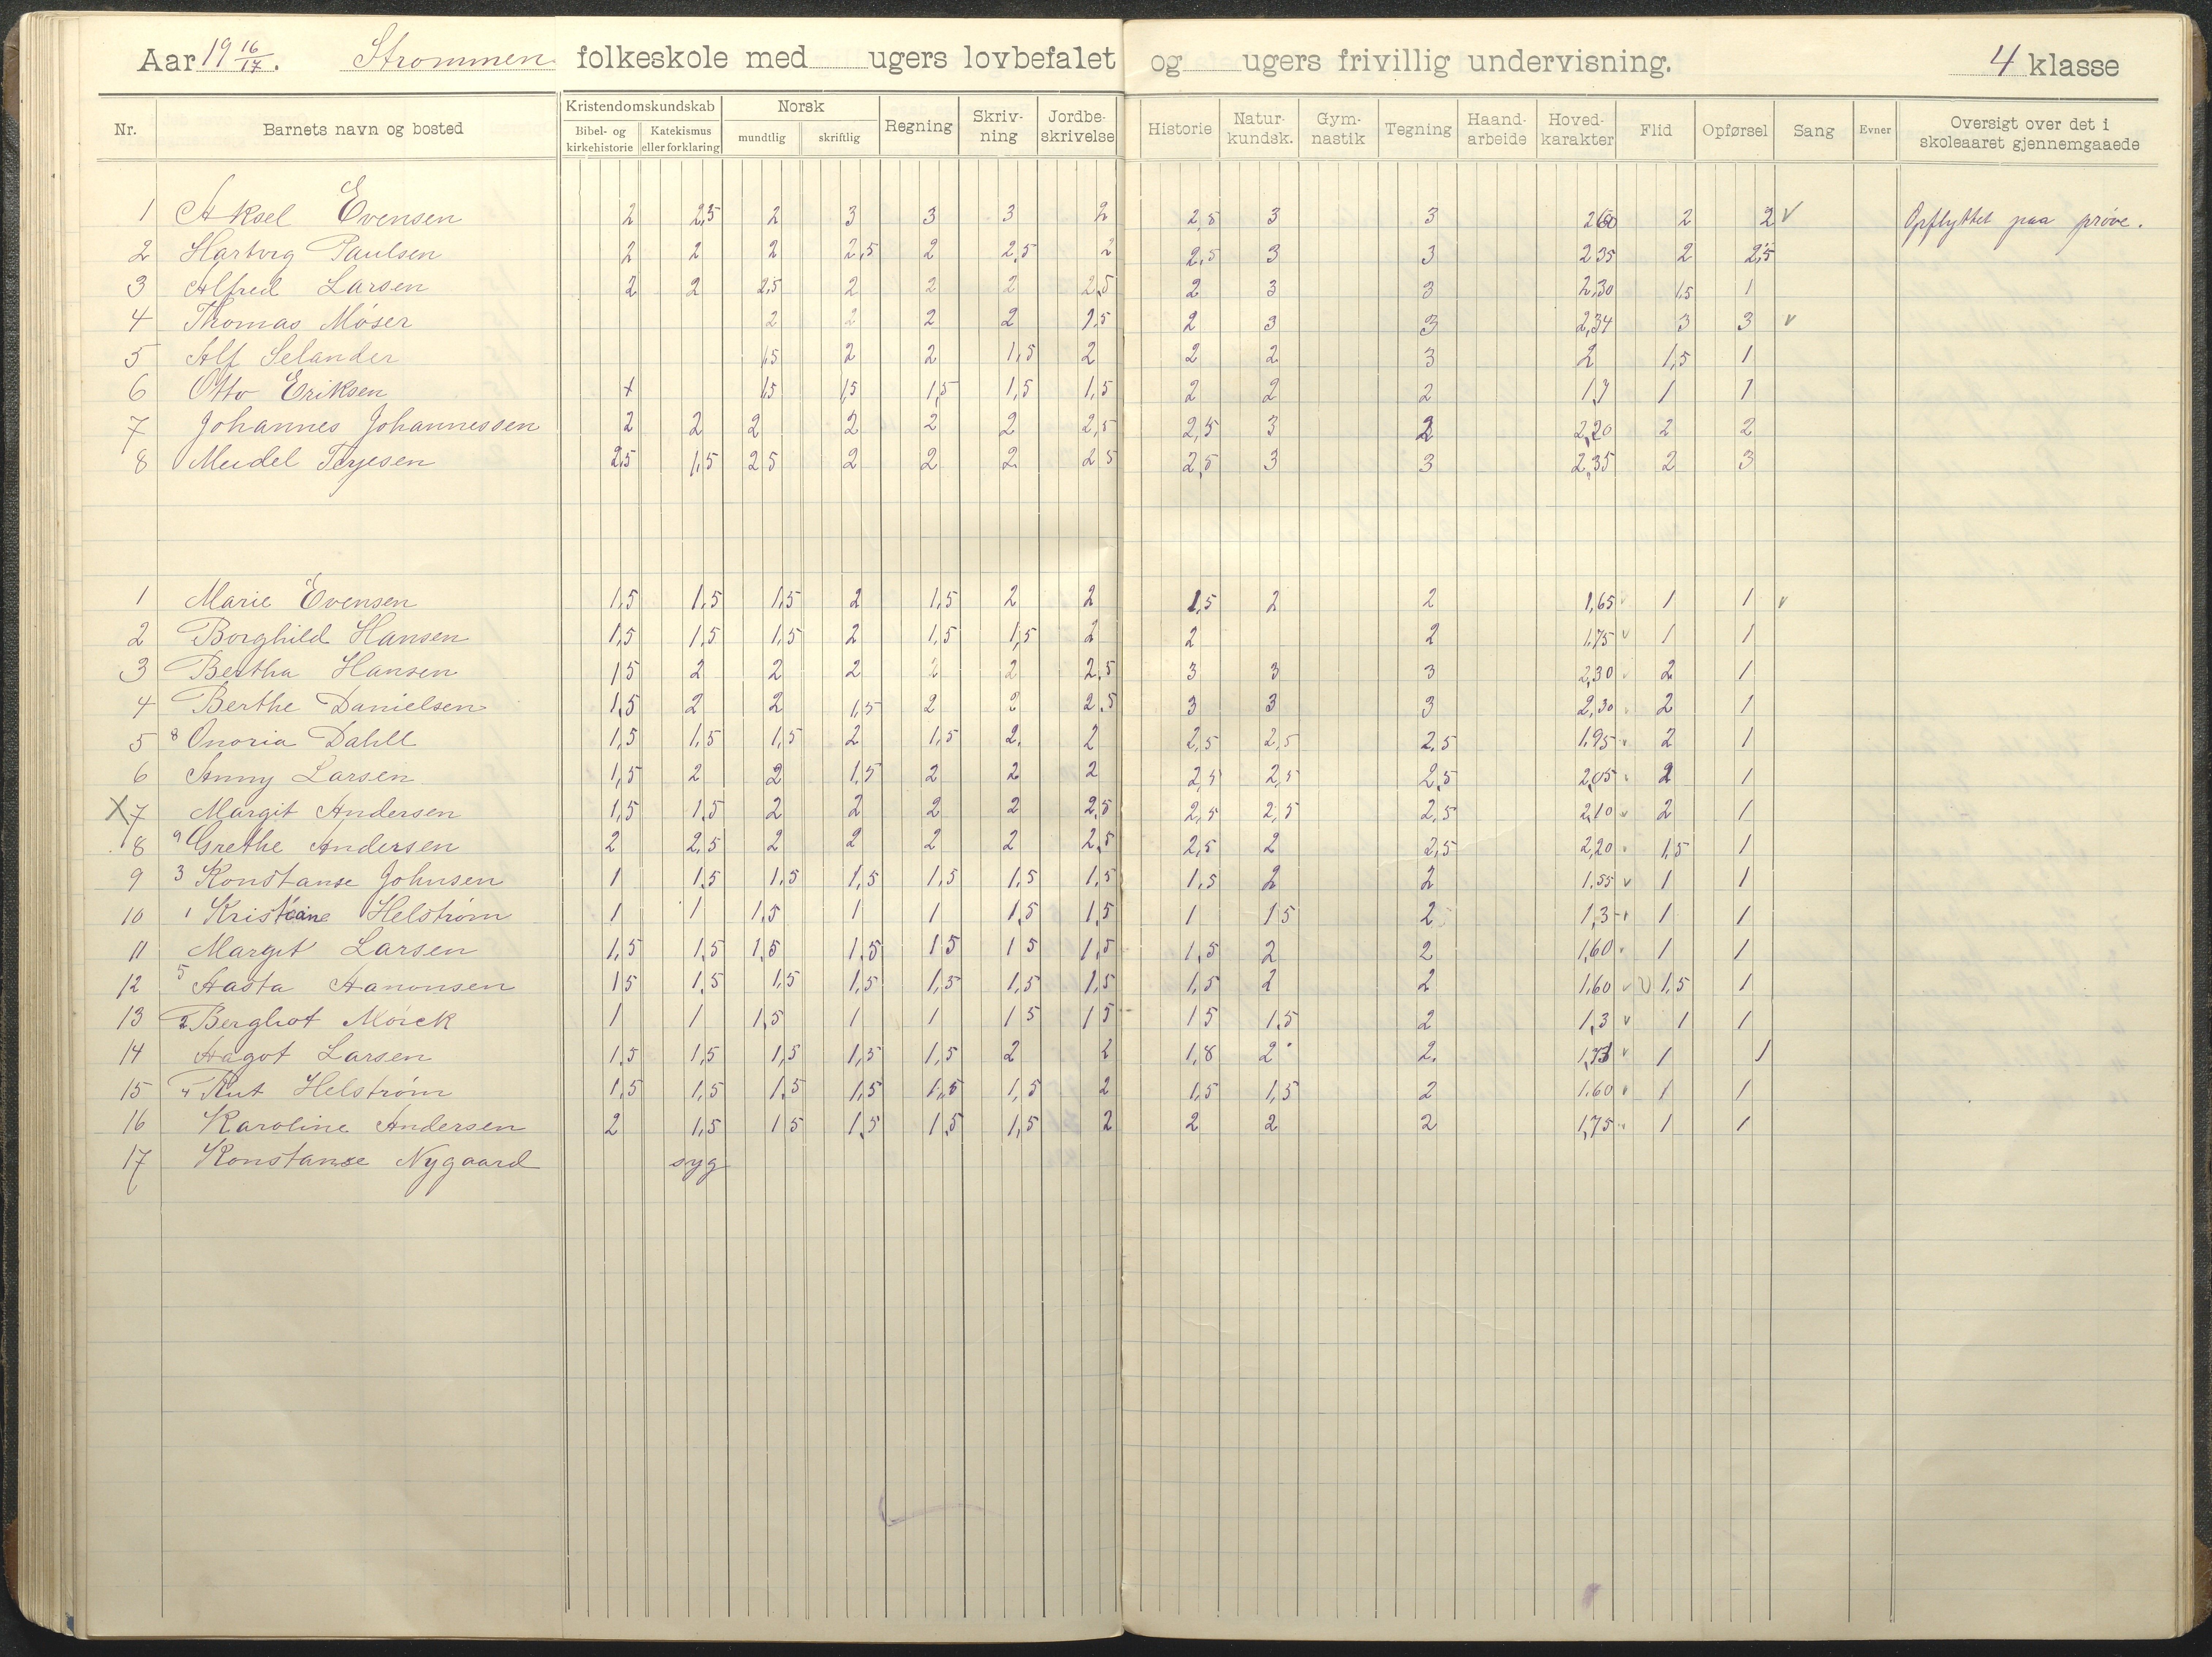 Aar 19 16/17. Strømmen folkeskole med ugers lovbefalet og ugers frivillig undervisning. 4 klasse
Nr. Barnets navn og bosted Kristendomskundskab Norsk Regning Skriv-ning Jordbe-skrivelse Historie Natur-kundsk. Gym-nastik Tegning Haand-arbeide Hoved-karakter Flid Opførsel Sang Evner Oversigt over det i skoleaaret gjennemgaaede
Bibel- og kirkehistorie Katekismus eller forklaring mundtlig skriftlig
1 Aksel Evensen 2 2,5 2 3 3 3 2 2,5 3 3 2,60 2 2 v Opflyttet paa prøve.
2 Hartvig Paulsen 2 2 2 2,5 2 2,5 2 2,5 3 3 2,35 2 2,5
3 Alfred Larsen 2 2 2,5 2 2 2 2,5 2 3 3 2,30 1,5 1
4 Thomas Möser 2 2 2 2 1,5 2 3 3 2,34 3 3 v
5 Alf Selander 1,5 2 2 1,5 2 2 2 3 2 1,5 1
6 Otto Eriksen + 1,5 1,5 1,5 1,5 1,5 2 2 2 1,7 1 1
7 Johannes Johannessen 2 2 2 2 2 2 2,5 2,5 3 2 2,20 2 2
8 Meidel Terjesen 2,5 1,5 2 5 2 2 2 2 5 2,5 3 3 2,35 2 3
1 Marie Evensen 1,5 1,5 1,5 2 1,5 2 2 1,5 2 2 1,65 v 1 1 v
2 Borghild Hansen 1,5 1,5 1,5 2 1,5 1,5 2 2 2 1,75 v 1 1
3 Bertha Hansen 1 5 2 2 2 2 2 2,5 3 3 3 2,30 2 1
4 Berthe Danielsen 1,5 2 2 1,5 2 2 2,5 3 3 3 2,30 2 1
5 8 Onoria Dahll 1,5 1,5 1,5 2 1,5 2 2 2,5 2,5 2,5 1,95 v 2 1
6 Anny Larsen 1,5 2 2 1,5 2 2 2 2,5 2,5 2,5 2,05 2 1
X 7 Margit Andersen 1,5 1,5 2 2 2 2 2,5 2,5 2,5 2,5 2,10 v 2 1
8 9 Grethe Andersen 2 2,5 2 2 2 2 2,5 2,5 2 2,5 2,20 1,5 1
9 3 Konstanse Johnsen 1 1,5 1,5 1,5 1,5 1,5 1,5 1,5 2 2 1,55 v 1 1
10 1 Kristine Helstrøm 1 1 1,5 1 1 1,5 1,5 1 1 5 2 1,3 1 1
11 Margit Larsen 1,5 1,5 1,5 1,5 1 5 1 5 1,5 1,5 2 2 1,60 v 1 1
12 5 Aasta Aanonsen 1 5 1,5 1,5 1,5 1,5 1,5 1,5 1,5 2 2 1,60 v v 1,5 1
13 2 Bergliot Mørck 1 1 1,5 1 1 1 5 1 5 1 5 1,5 2 1,3 v 1 1
14 Aagot Larsen 1,5 1,5 1,5 1,5 1,5 2 2 1,8 2 2 v 1 1
15 4 Rut Helstrøm 1,5 1,5 1,5 1,5 1,5 1,5 2 1,5 1,5 2 1,60 v 1 1
16 Karoline Andersen 2 1,5 1 5 1,5 1,5 1,5 2 2 2 2 1,75 v 1 1
17 Konstanse Nygaard syg